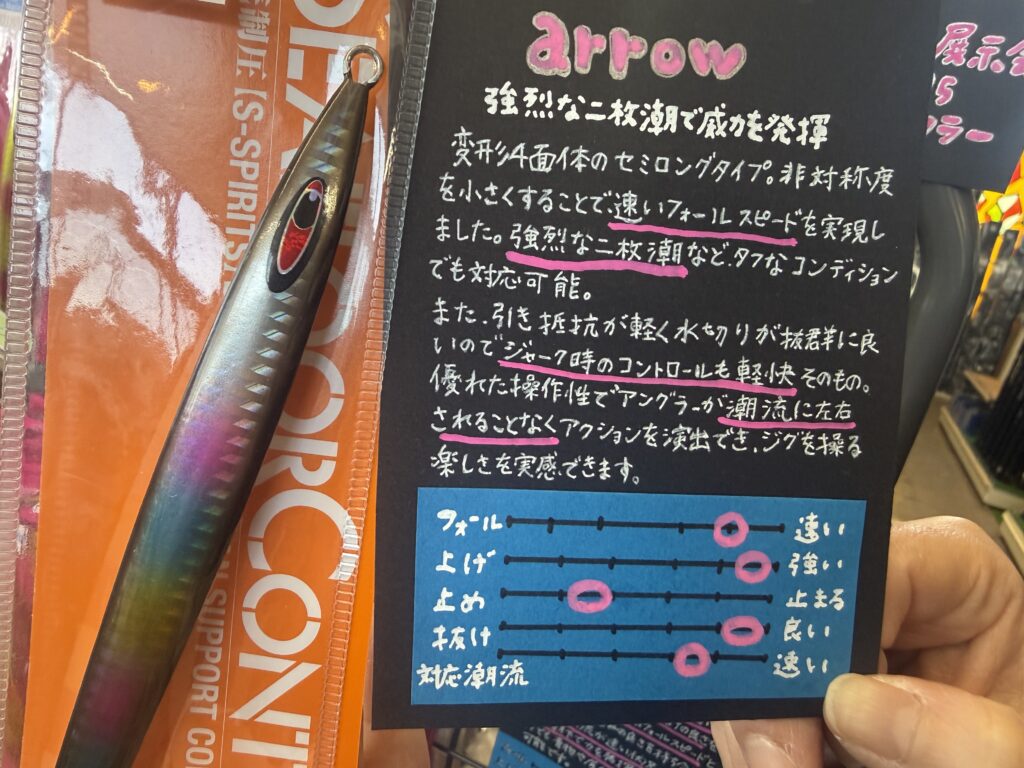 arrow
強烈な二枚潮で威力を発揮
変形4面体のセミロングタイプ。非対称度
を小さくすることで速いフォールスピードを実現し
ました。強烈な二枚潮など、タフなコンディション
でも対応可能。
また、引き抵抗が軽く水切りが抜群に良
いのでジャーク時のコントロールも軽快そのもの。
優れた操作性でアングラーが潮流に左右
されることなくアクションを演出でき、ジグを操る
楽しさを実感できます。
フォール 速い
上げ 強い
止め 止まる
抜け 良い
対応潮流 速い
制圧【S-SPIRITS
SUPPORT CO
展示会